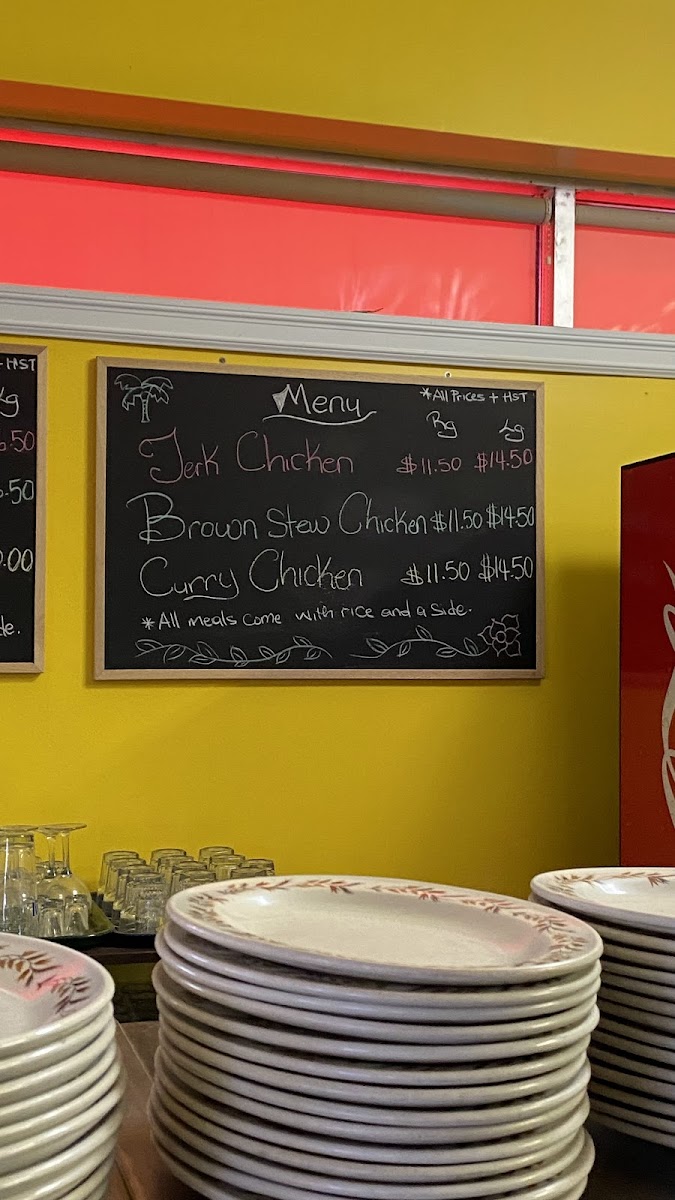 + HST
.50
.50
.00
Menu
*All Prices + HST
Rg Lg
Jerk Chicken $11.50 $14.50
Brown Stew Chicken $11.50 $14.50
Curry Chicken $11.50 $14.50
*All meals come with rice and a side.